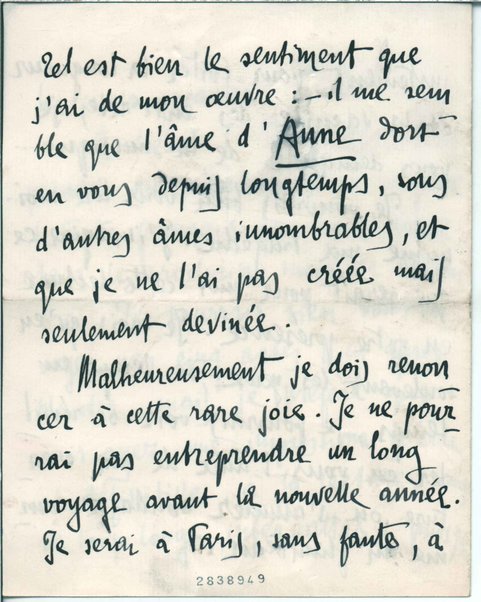 Tel est bien le sentiment que
j'ai de mon œuvre : – il me sem
ble que l'âme d'Anne dort
en vous depuis longtemps, sous
d'autres âmes innombrables, et
que je ne l'ai pas créée mais
seulement devinée.
Malheureusement je dois renon
cer à cette rare joie. Je ne pour
rai pas entreprendre un long
voyage avant la nouvelle année.
Je serai à Paris, sans faute, à
2838949